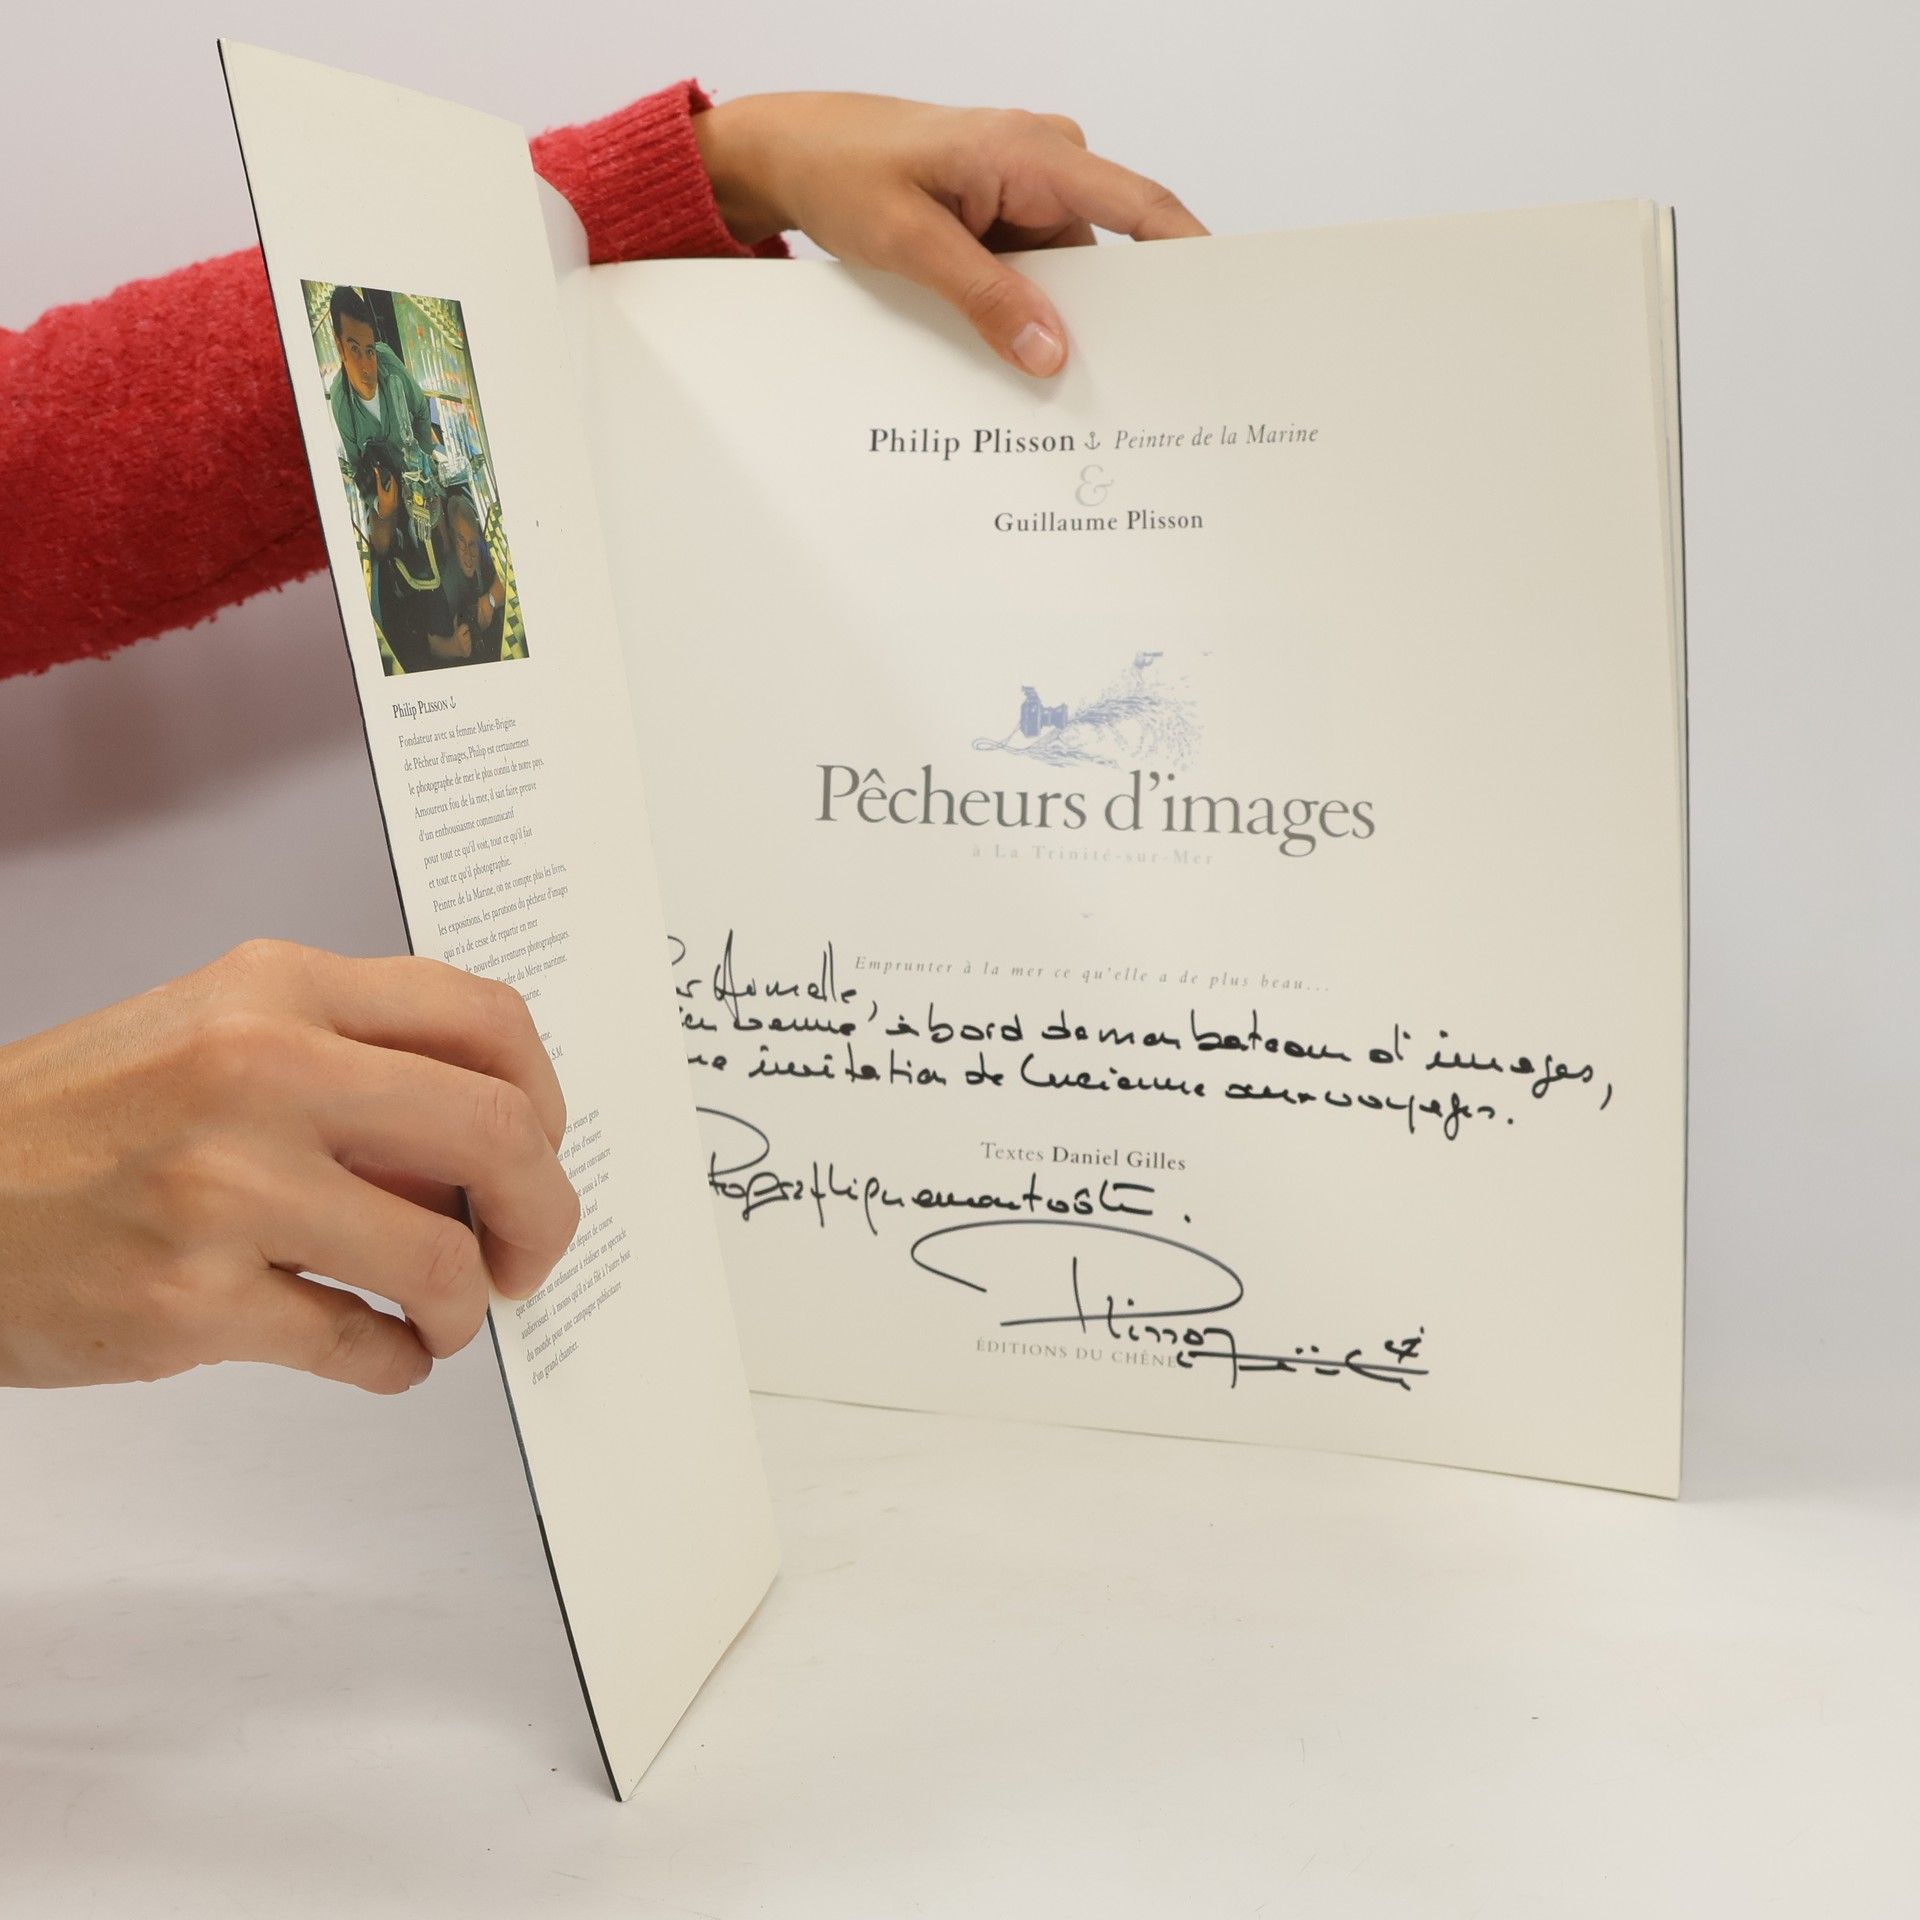 Philip PLISSON
Fondateur avec sa femme Marie-Brigitte
de Pêcheur d'images, Philip est certainement
le photographe de mer le plus connu de notre pays.
Amoureux fou de la mer, il sait faire preuve
d'un enthousiasme communicatif
pour tout ce qu'il voit, tout ce qu'il fait
et tout ce qu'il photographie.
Peintre de la Marine, on ne compte plus les livres,
les expositions, les parutions du pêcheur d'images
qui n'a de cesse de repartir en mer
de nouvelles aventures photographiques.
l'ordre du Mérite maritime.
ces jeunes gens
en plus d'essayer
doivent convaincre
aussi à l'aise
à bord
un départ de course
que derrière un ordinateur à réaliser un spectacle
audiovisuel - à moins qu'il n'ait filé à l'autre bout
du monde pour une campagne publicitaire
d'un grand chantier.
Philip Plisson ⚓ Peintre de la Marine
&
Guillaume Plisson
Pêcheurs d'images
à La Trinité-sur-Mer
Emprunter à la mer ce qu'elle a de plus beau...
Armelle,
venue à bord de mon bateau d'images,
invitation de Lucienne aux voyages.
Textes Daniel Gilles
Plisson
ÉDITIONS DU CHÊNE